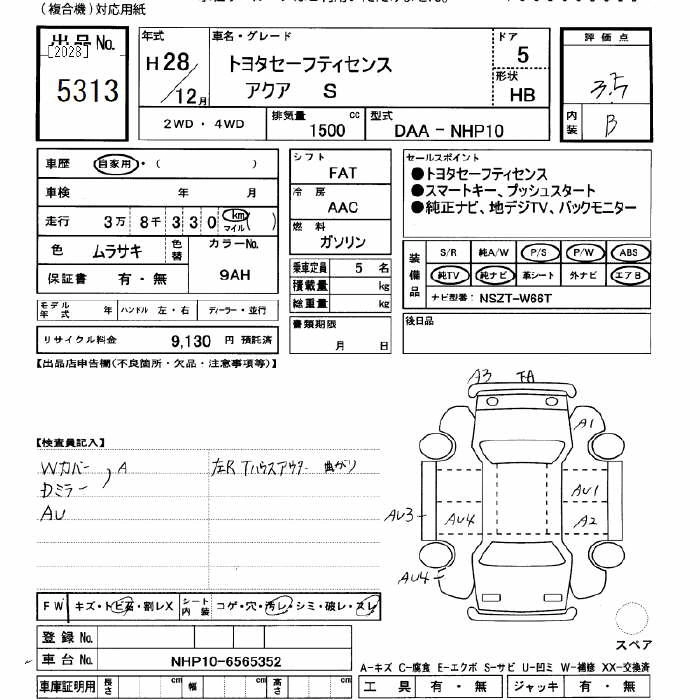 (複合機)対応用紙
出品No.
[2028]
5313
年式
H28/12月
車名・グレード
トヨタセーフティセンス
アクア S
ドア
5
形状
HB
2WD・4WD
排気量 1500 cc
型式 DAA-NHP10
評価点
3.5
内装 B
車歴 自家用・( )
車検 年 月
走行 3万8千330 km マイル ( )
色 ムラサキ 色替
カラーNo.
9AH
保証書 有・無
モデル年式 年 ハンドル 左・右 ディーラー・並行
リサイクル料金 9,130 円 預託済
シフト
FAT
冷房
AAC
燃料
ガソリン
乗車定員 5 名
積載量 kg
総重量 kg
書類期限
月 日
セールスポイント
●トヨタセーフティセンス
●スマートキー、プッシュスタート
●純正ナビ、地デジTV、バックモニター
装備品
S/R 純A/W P/S P/W ABS
純TV 純ナビ 革シート 外ナビ エアB
ナビ型番: NSZT-W66T
後日品
【出品店申告欄(不良箇所・欠品・注意事項等)】
【検査員記入】
Wカバー
Dミラー , A
AU
左R Tハウスアウター 曲がり
A3 FA
A1
AU1
A2
AU3
AU4
AU4
スペア
FW キズ・トビ石・割レX
シート内装 コゲ・穴・汚レ・シミ・破レ・スレ
登録No.
車台No. NHP10-6565352
車庫証明用 長さ cm 幅 cm 高さ cm
A-キズ C-腐食 E-エクボ S-サビ U-凹ミ W-補修 XX-交換済
工具 有・無 ジャッキ 有・無